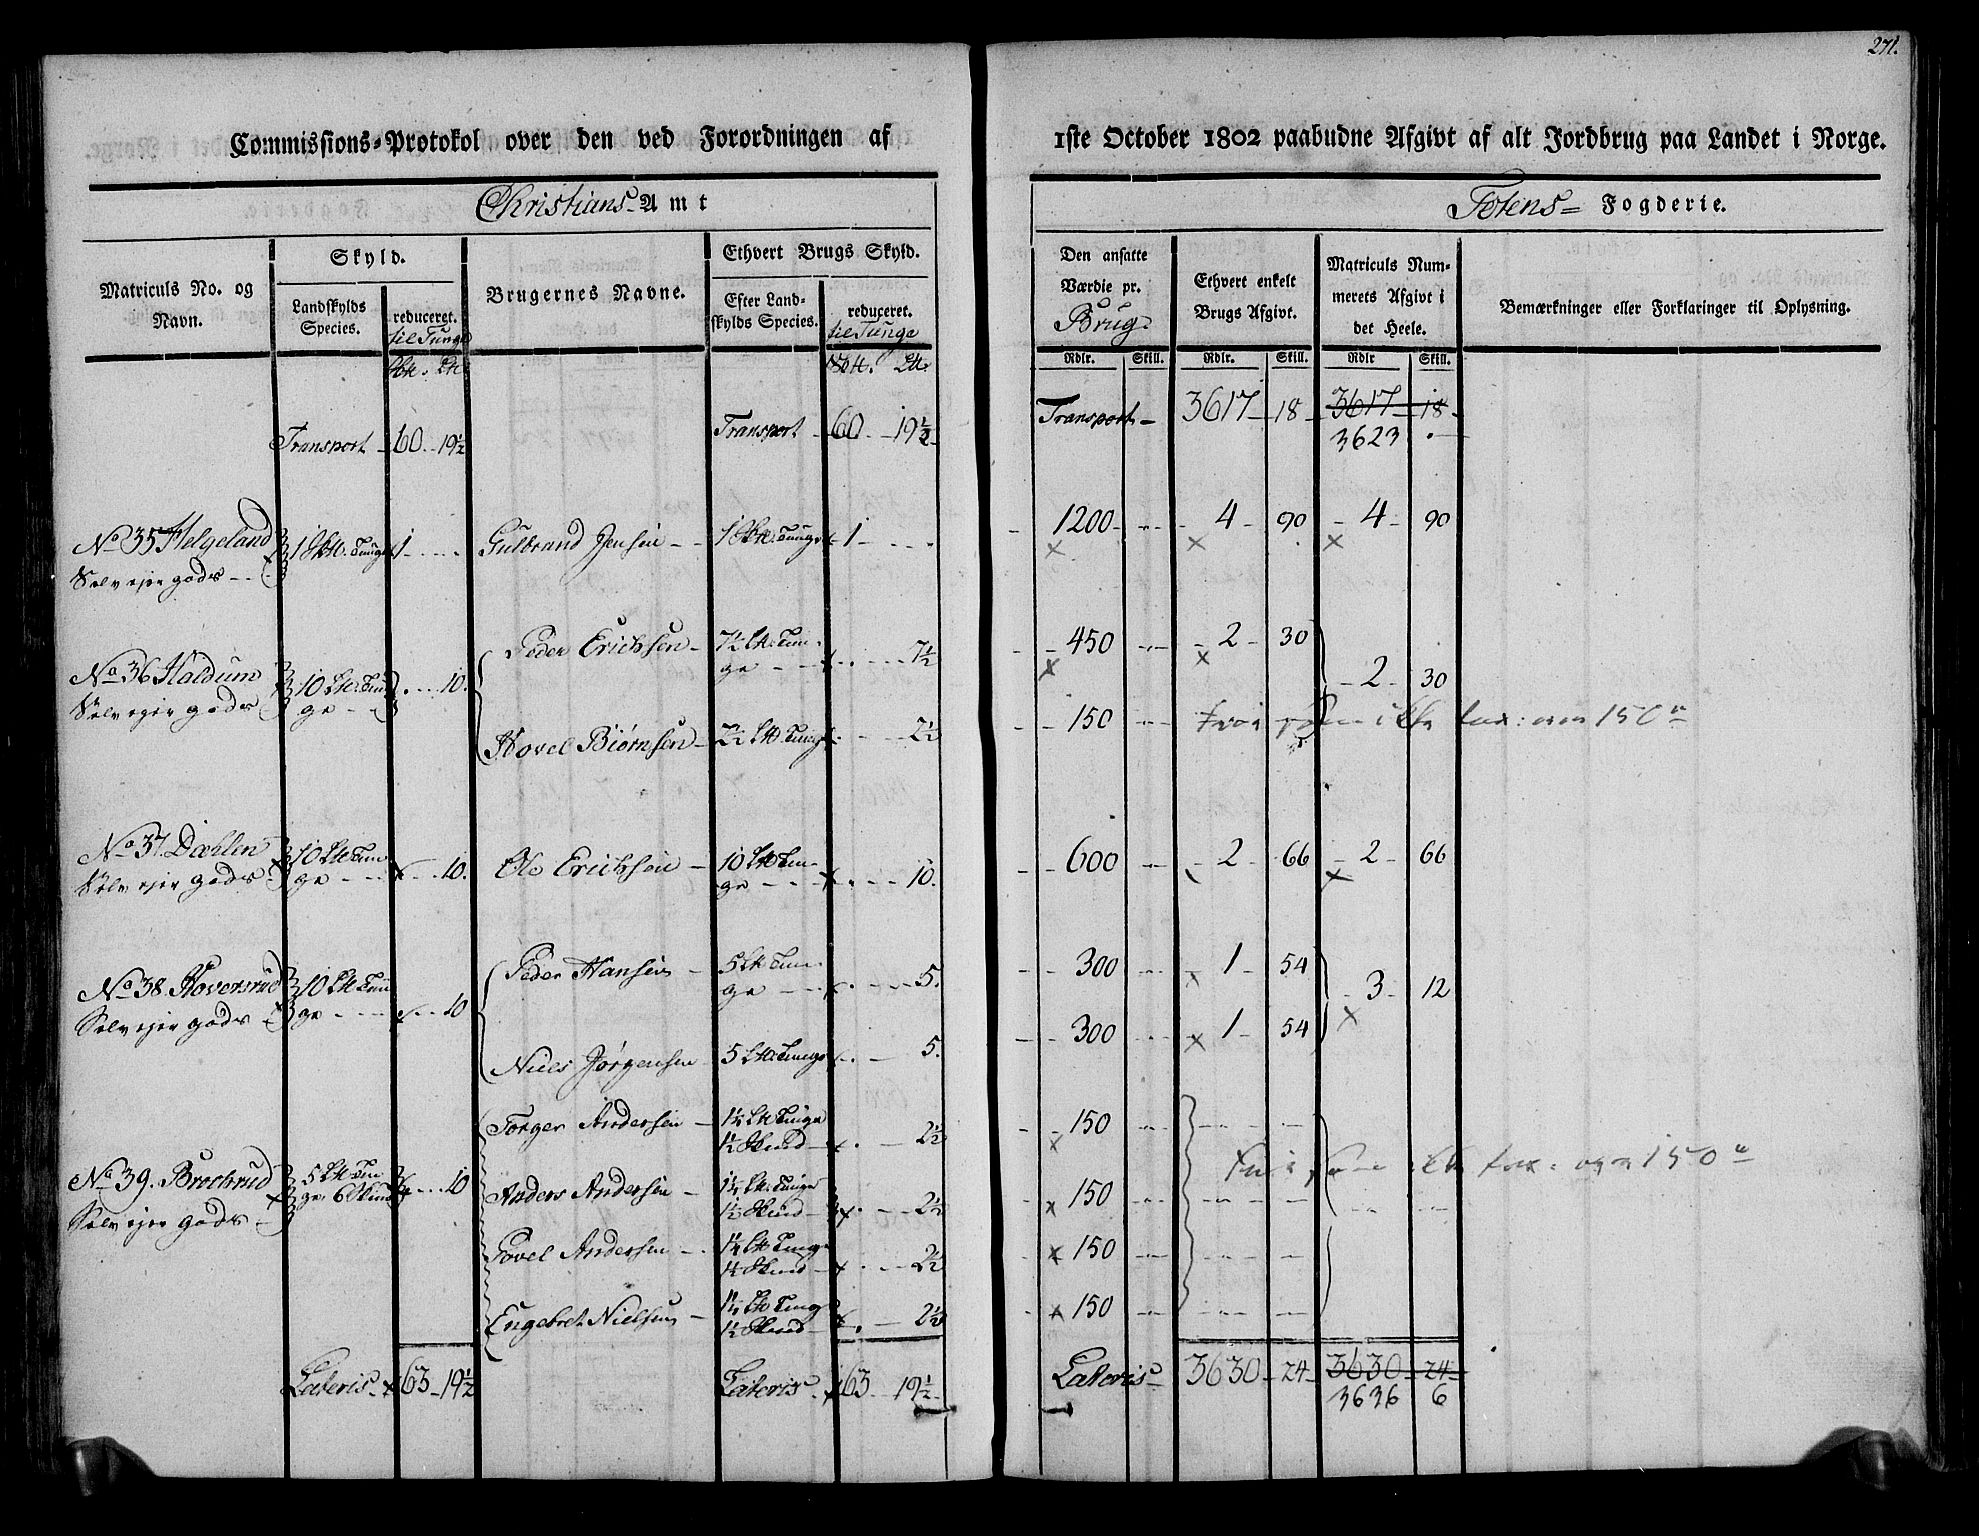 271.
Commissions-Protokol over den ved Forordningen af 1ste October 1802 paabudne Afgivt af alt Jordbrug paa Landet i Norge.
Christians Amt
Totens Fogderie.
Matriculs No. og Navn.
Skyld.
Landskylds Species.
reduceret. til Tunge
Brugernes Navne.
Ethvert Brugs Skyld.
Efter Landskylds Species.
reduceret. til Tunge
Den ansatte Værdie pr. Brug
Ethvert enkelt Brugs Afgivt.
Matriculs Nummerets Afgivt i det Heele.
Bemærkninger eller Forklaringer til Oplysning.
Rdlr. Skill. Rdlr. Skill. Rdlr Skill.
Transport 60 19½ Transport 60 19½ Transport 3617 18 3617 18
3623
No 35 Helgeland 1 Tunge 1 Gulbrand Jensen 1 Tunge 1 1200 4 90 4 90
Selv ejer gods
Peder Erichsen 7½ Tunge 7½ 450 2 30
No 36 Haldum 10 Tunge 10. 2 30
Selv ejer gods
Hovel Biørnsen 2½ Tunge 2½ 150 ikke 150
No 37. Dæhlen 10 Tunge 10. Ole Erichsen 10 Tunge 10. 600 2 66 2 66
Selv ejer gods
Peder Hansen 5 Tunge 5. 300 1 54
No 38. Hoversrud 10 Tunge 10 3 12
Selv ejer gods
Niels Jørgensen 5 Tunge 5. 300 1 54
Torger Andersen 1¼ Tunge 1½ Hud 2½ 150
No 39. Brochrud 5 Tunge 6 10 150
Selv ejer gods
Anders Andersen 1¼ Tunge 1½ Hud 2½ 150
Povel Andersen 1¼ Tunge 1½ Hud 2½ 150
Engebret Nielsen 1¼ Tunge 1½ Hud 2½ 150
Lateris 63 19½ Lateris 63 19½ Lateris 3630 24 3630 24
3636 6